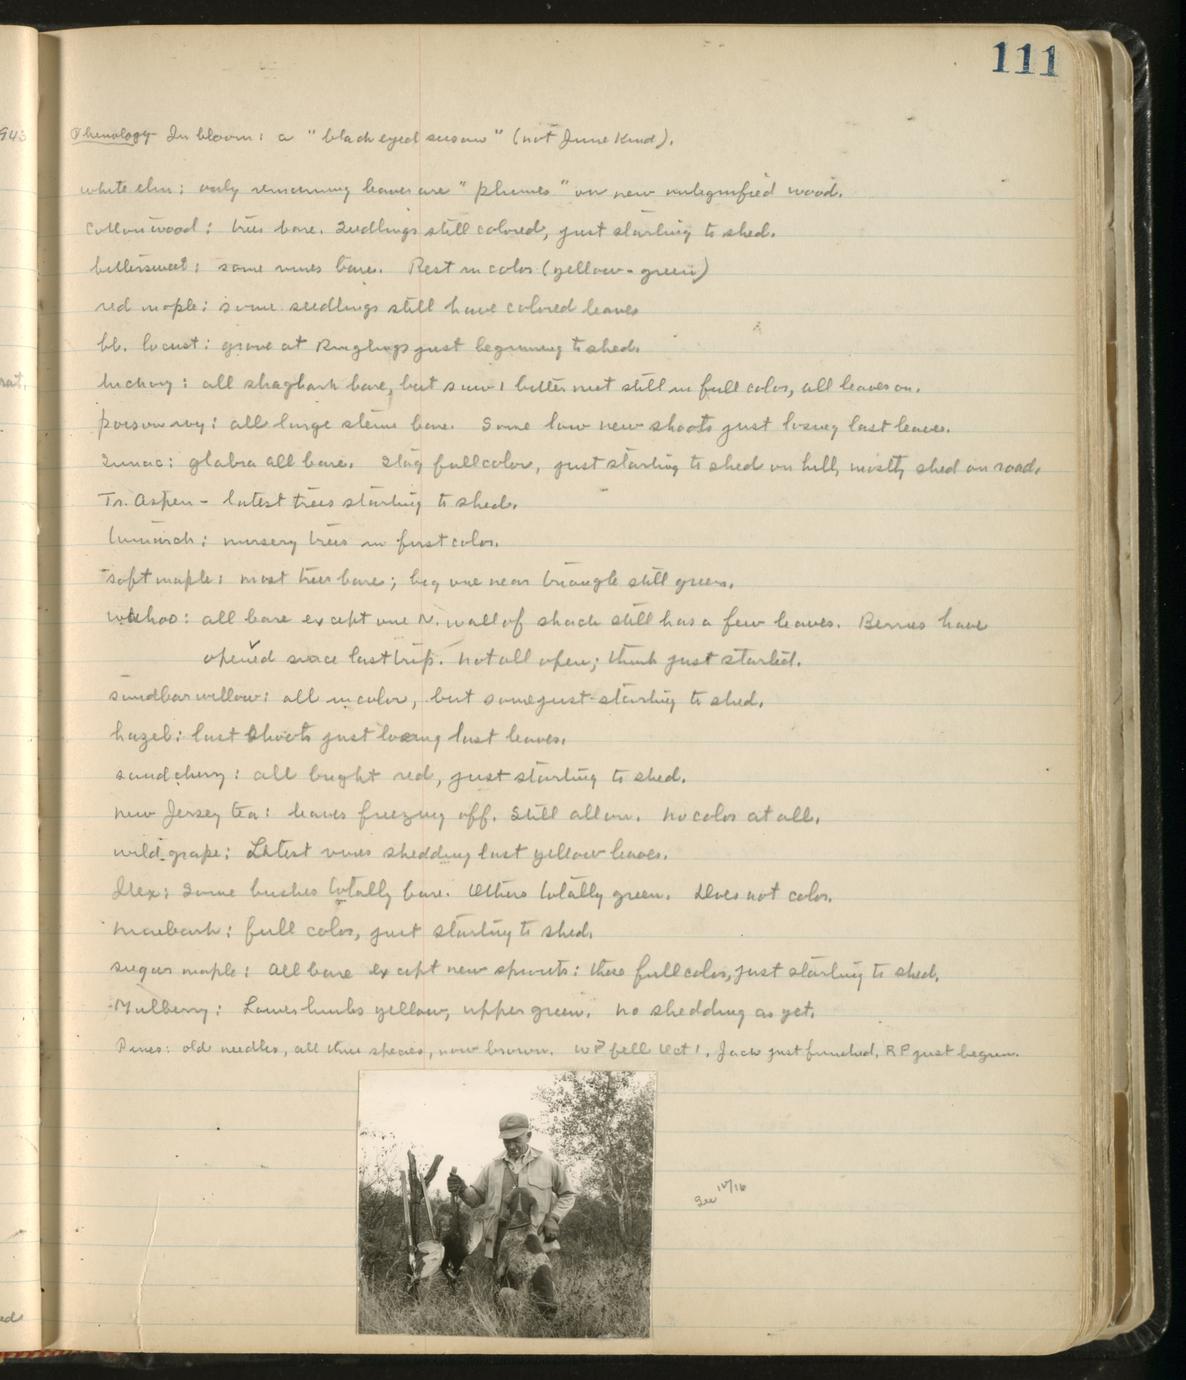 111
943
Phenology In bloom: a "black eyed susan" (not June kind).
white elm: only remaining leaves are "plumes" on new unlignified wood.
Cottonwood: trees bare. Seedlings still colored, just starting to shed.
bittersweet: some vines bare. Rest in color (yellow-green)
red maple: some seedlings still have colored leaves
bl. locust: grove at Ringlings just beginning to shed.
hickory: all shagbark bare, but saw 1 bitternut still in full color, all leaves on.
poison ivy: all large stems bare. Some low new shoots just losing last leaves.
Sumac: glabra all bare. Stag full color, just starting to shed on hill, mostly shed on road.
Tr. Aspen - latest trees starting to shed.
tamarack: nursery trees in first color.
soft maple: most trees bare; big one near triangle still green.
wahoo: all bare except one N. wall of shack still has a few leaves. Berries have
opened since last trip. Not all open; think just started.
sandbar willow: all in color, but some just starting to shed.
hazel: last shoots just losing last leaves.
sand cherry: all bright red, just starting to shed.
new Jersey tea: leaves freezing off. Still all on. No color at all.
wild grape: Latest vines shedding last yellow leaves.
Ilex: Some bushes totally bare. Others totally green. Does not color.
ninebark: full color, just starting to shed.
sugar maple: All bare except new sprouts: these full color, just starting to shed.
Mulberry: Lower limbs yellow, upper green. No shedding as yet.
Pines: old needles, all three species, now brown. WP fell Oct 1, Jack just finished, RP just begun.
See 10/16